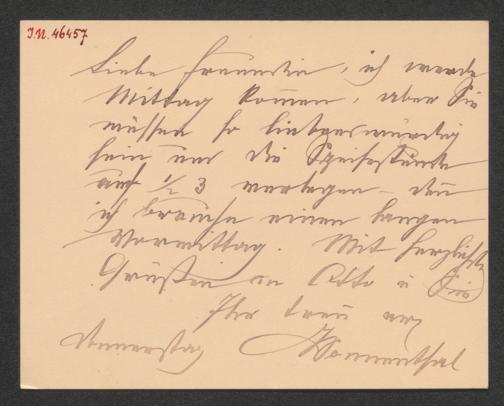 I.N. 46457
Liebe Freundin, ich werde
Mittag kommen, aber Sie
müssen so liebenswürdig
sein und die Speisestunde
auf ½ 3 verlegen – denn
ich brauche einen langen
Vormittag. Mit herzlichsten
Grüßen an Otto u Sie
Ihr treu erg
Donnerstag Sonnenthal